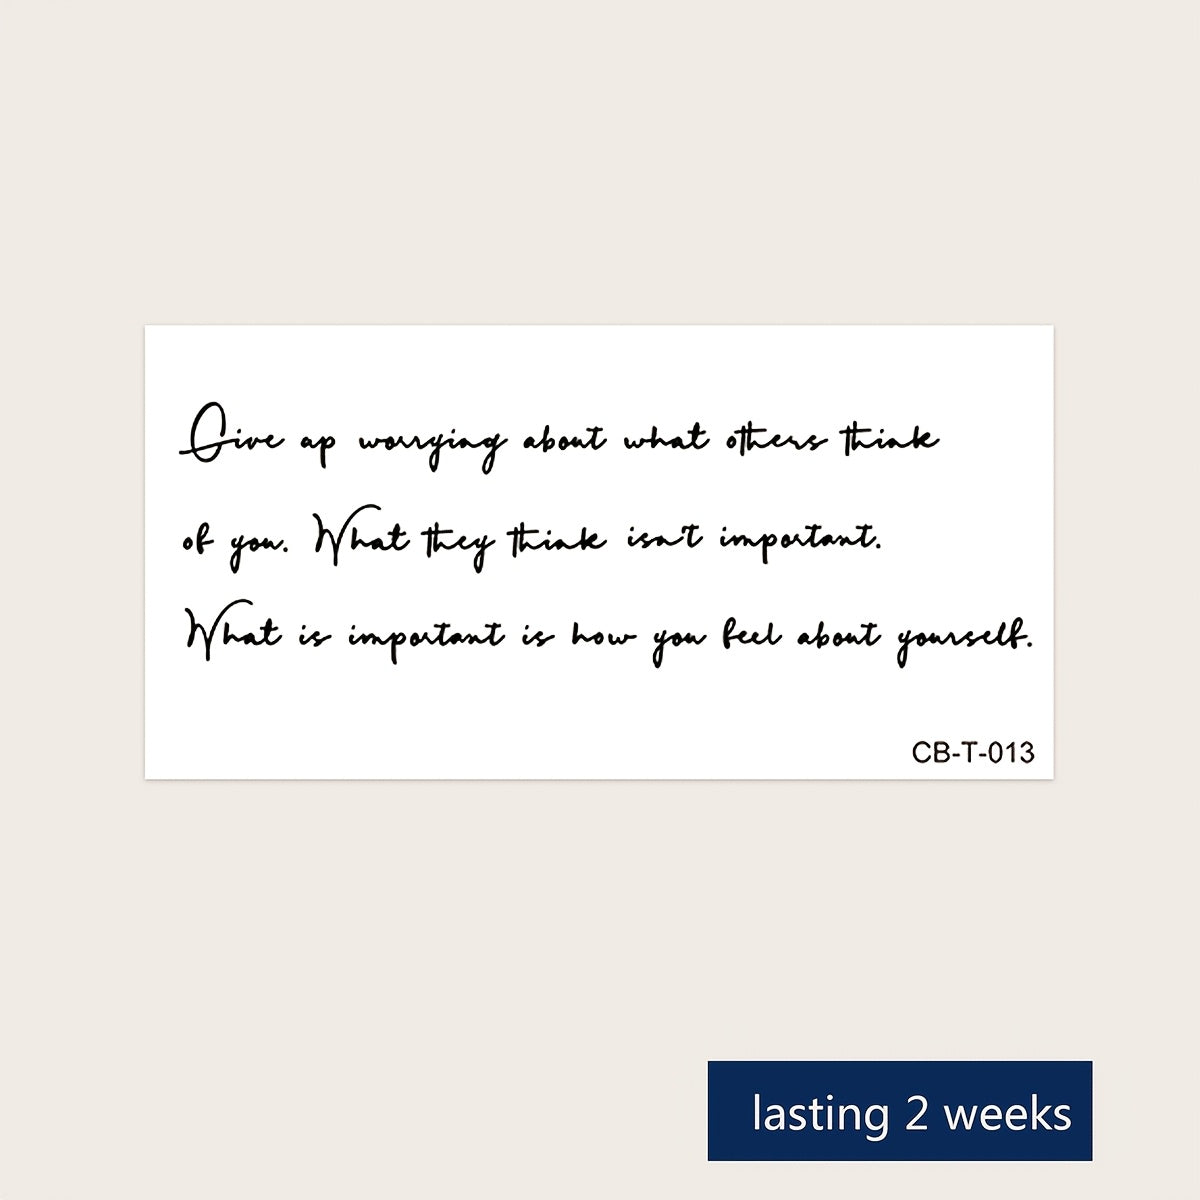 Give up worrying about what others think
of you. What they think isn't important.
What is important is how you feel about yourself.
CB-T-013
lasting 2 weeks